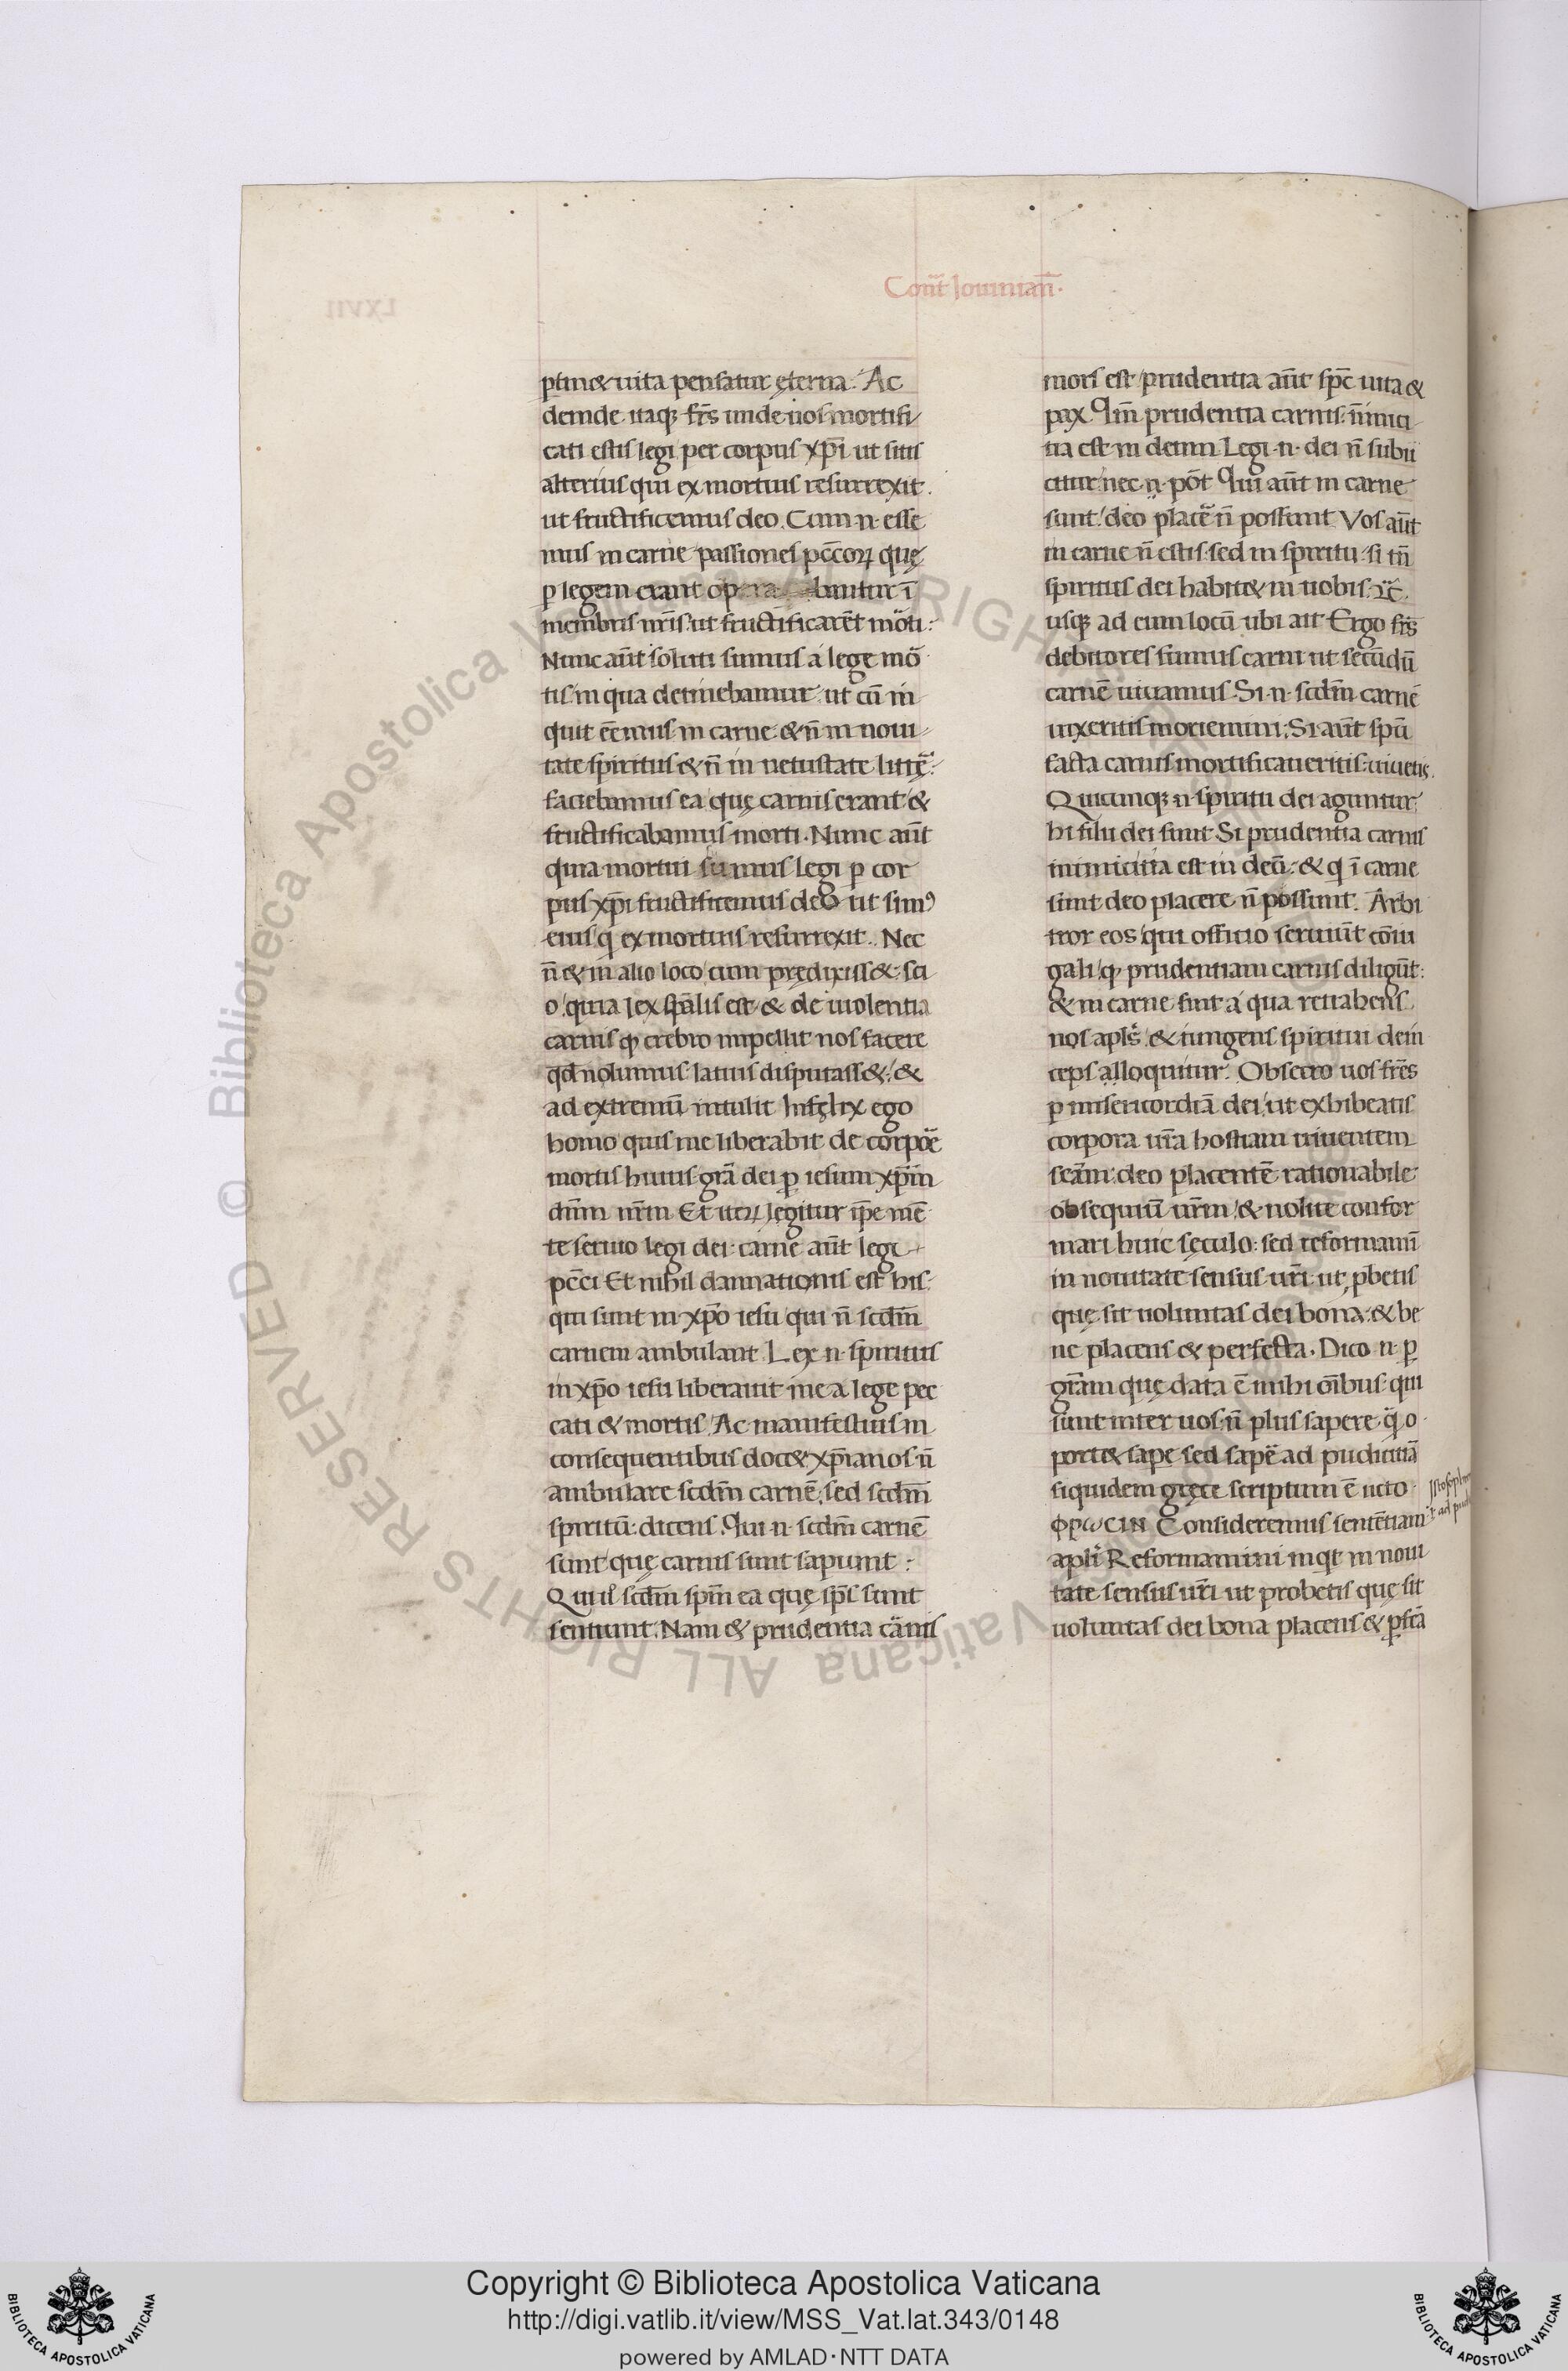 Con̄t Iouinian̄.
LXVII
ꝑtin& uita pensatur ęterna. Ac
deinde. itaq; fr̄s unde uos mortifi
cati estis legi per corpus xp̄i ut sitis
alterius qui ex mortuis resurrexit.
ut fructificemus deo. Cum .n. esse
mus in carne passiones pc̄coꝝ quę
ꝑ legem erant opera bantur ī
membris nr̄is ut fructificarēt morti:
Nunc aūt soluti sumus a lege mor
tis in qua detinebamur ut cū in
quit eēmus in carne & n̄ in noui
tate spiritus & n̄ in uetustate littere:
faciebamus ea quę carnis erant &
fructificabamus morti. Nunc aūt
quia mortui sumus legi ꝑ cor
pus xp̄i fructificemus deo ut simꝰ
eius q ex mortuis resurrexit. Nec
n̄ & in alio loco cum prędixiss& sci
o quia lex sp̄alis est & de uiolentia
carnis ꝙ crebro impellit nos facere
qd̄ nolumus latius disputass& &
ad extremū intulit Infęlix ego
homo quis me liberabit de corpore
mortis huius grā dei ꝑ iesum xp̄m
dn̄m nr̄m Et iteꝝ legitur ip̄e mē
te seruio legi dei carne aūt legi
pc̄ci Et nihil dannationis est his
qui sunt in xp̄o iesu qui n̄ scd̄m
carnem ambulant Lex .n. spiritus
in xp̄o iesu liberauit me a lege pec
cati & mortis Ac manifestius in
consequentibus doc& xp̄ianos n̄
ambulare scd̄m carnē sed scd̄m
spiritū: dicens. Qui .n. scd̄m carnē
sunt quę carnis sunt sapunt:
Qui scd̄m sp̄m ea quę sp̄s sunt
sentiunt. Nam & prudentia carnis
mors est prudentia aūt sp̄c uita &
pax. Qm̄ prudentia carnis inimici
tia est in deum Legi .n. dei n̄ subii
citur nec .n. pōt Qui aūt in carne
sunt deo placē n̄ possunt Vos aūt
in carne n̄ estis sed in spiritu si tn̄
spiritus dei habit& in uobis &c̄.
usq; ad eum locū ubi ait Ergo fr̄s
debitores sumus carni ut secūdū
carnē uiuamus Si .n. scd̄m carnē
uixeritis moriemini; Si aūt spū
facta carnis mortificaueritis uiuetis.
Quicunq; .n. spiritu dei aguntur
hi filii dei sunt Si prudentia carnis
inimicitia est in deū & q ī carne
sunt deo placere n̄ possunt. Arbi
tror eos qui officio seruiūt cōiu
gali ꝙ prudentiam carnis diligūt:
& in carne sint a qua retrahens
nos apl̄s & iungens spiritui dein
ceps alloquitur. Obsecro uos fr̄es
ꝑ misericordiā dei ut exhibeatis
corpora ur̄a hostiam uiuentem
scām deo placentē rationabile
obsequiū ur̄m & nolite confor
mari huic sęculo: sed reformami
in nouitate sensus ur̄i ut ꝓbetis
quę sit uoluntas dei bona & be
ne placens & perfecta. Dico .n. ꝑ
grām quę data ē mihi oībus qui
sunt inter uos n̄ plus sapere q̄ o
port& sape sed sape ad pudicitiā
siquidem gręce scriptum ē ucto
φρωCIN Consideremus sentētiam
apl̄i Reformamini inqt in noui
tate sensus ur̄i ut probetis quę sit
uoluntas dei bona placens & ꝑfc̄ā
Copyright © Biblioteca Apostolica Vaticana
http://digi.vatlib.it/view/MSS_Vat.lat.343/0148
powered by AMLAD·NTT DATA
BIBLIOTECA APOSTOLICA VATICANA
BIBLIOTECA APOSTOLICA VATICANA
© Biblioteca Apostolica Vaticana ALL RIGHTS RESERVED